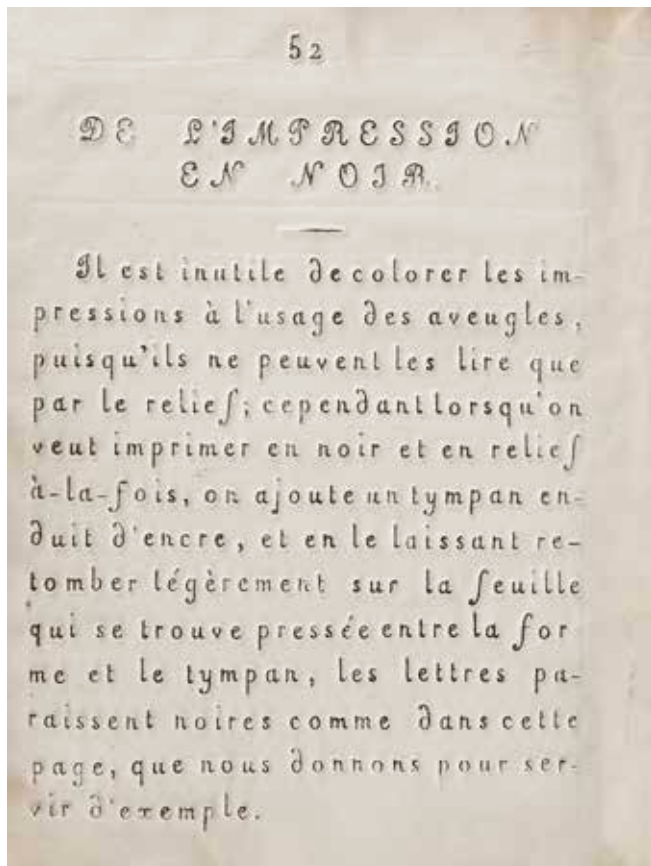 52
DE L'IMPRESSION
EN NOIR.
Il est inutile de colorer les im-
pressions à l'usage des aveugles,
puisqu'ils ne peuvent les lire que
par le relief; cependant lorsqu'on
veut imprimer en noir et en relief
à-la-fois, on ajoute un tympan en-
duit d'encre, et en le laissant re-
tomber légèrement sur la feuille
qui se trouve pressée entre la for
me et le tympan, les lettres pa-
raissent noires comme dans cette
page, que nous donnons pour ser-
vir d'exemple.